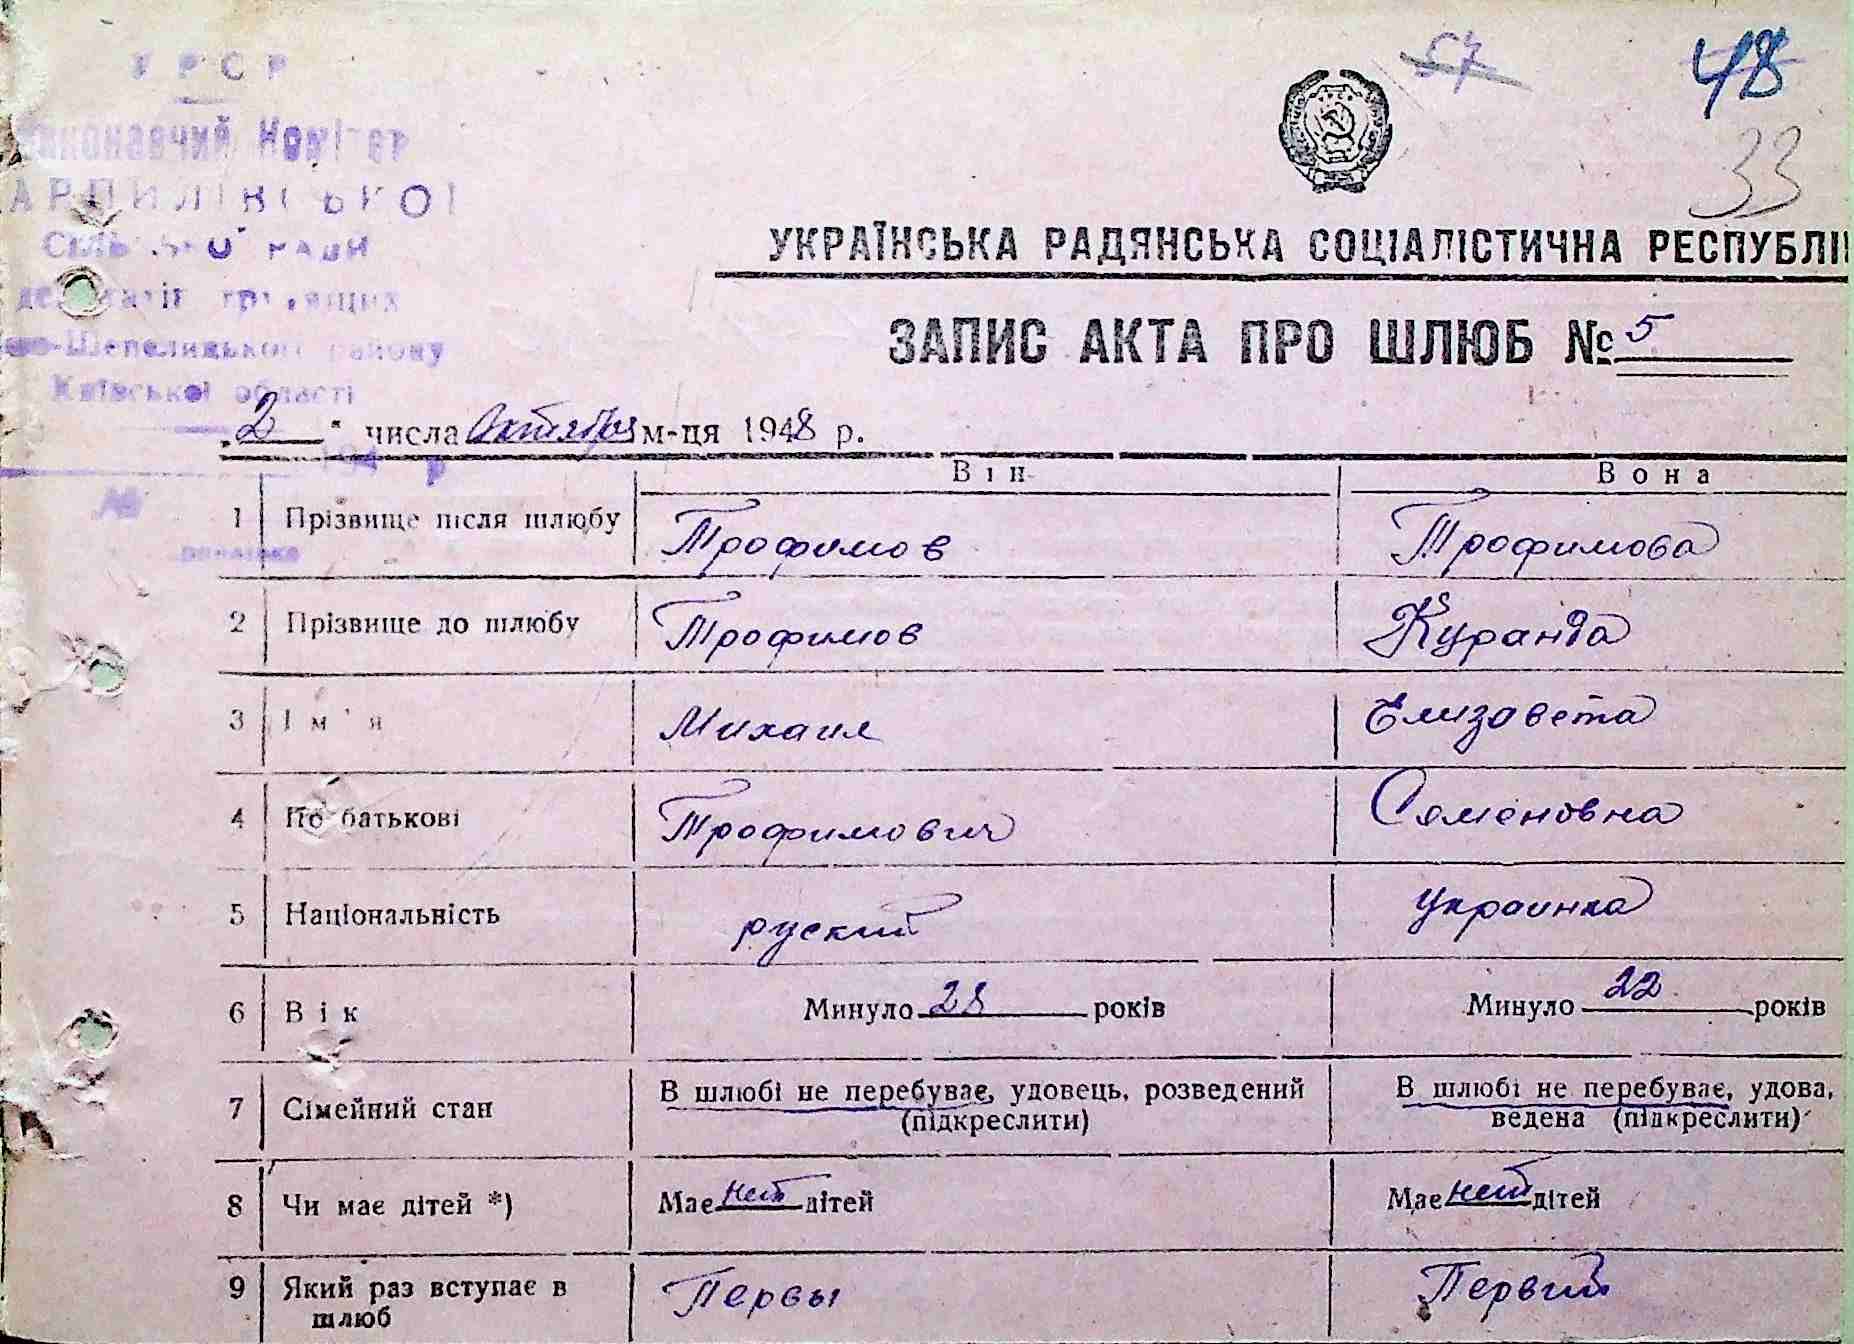 УРСР
57
48
Виконавчий Комітет
33
АРПИЛІВСЬКОЇ
УКРАЇНСЬКА РАДЯНСЬКА СОЦІАЛІСТИЧНА РЕСПУБЛІ
ЗАПИС АКТА ПРО ШЛЮБ № 5
-Шепелицького району
Київської області
"2" числа Октября м-ця 1948 р.
Він Вона
1 Прізвище після шлюбу Трофимов Трофимова
2 Прізвище до шлюбу Трофимов Куранда
3 Ім'я Михаил Елизавета
4 По батькові Трофимович Семеновна
5 Національність руский украинка
6 Вік Минуло 28 років Минуло 22 років
7 Сімейний стан В шлюбі не перебуває, удовець, розведений В шлюбі не перебуває, удова,
(підкреслити) ведена (підкреслити)
8 Чи має дітей *) Має нет дітей Має нет дітей
9 Який раз вступає в Первы Первий
шлюб